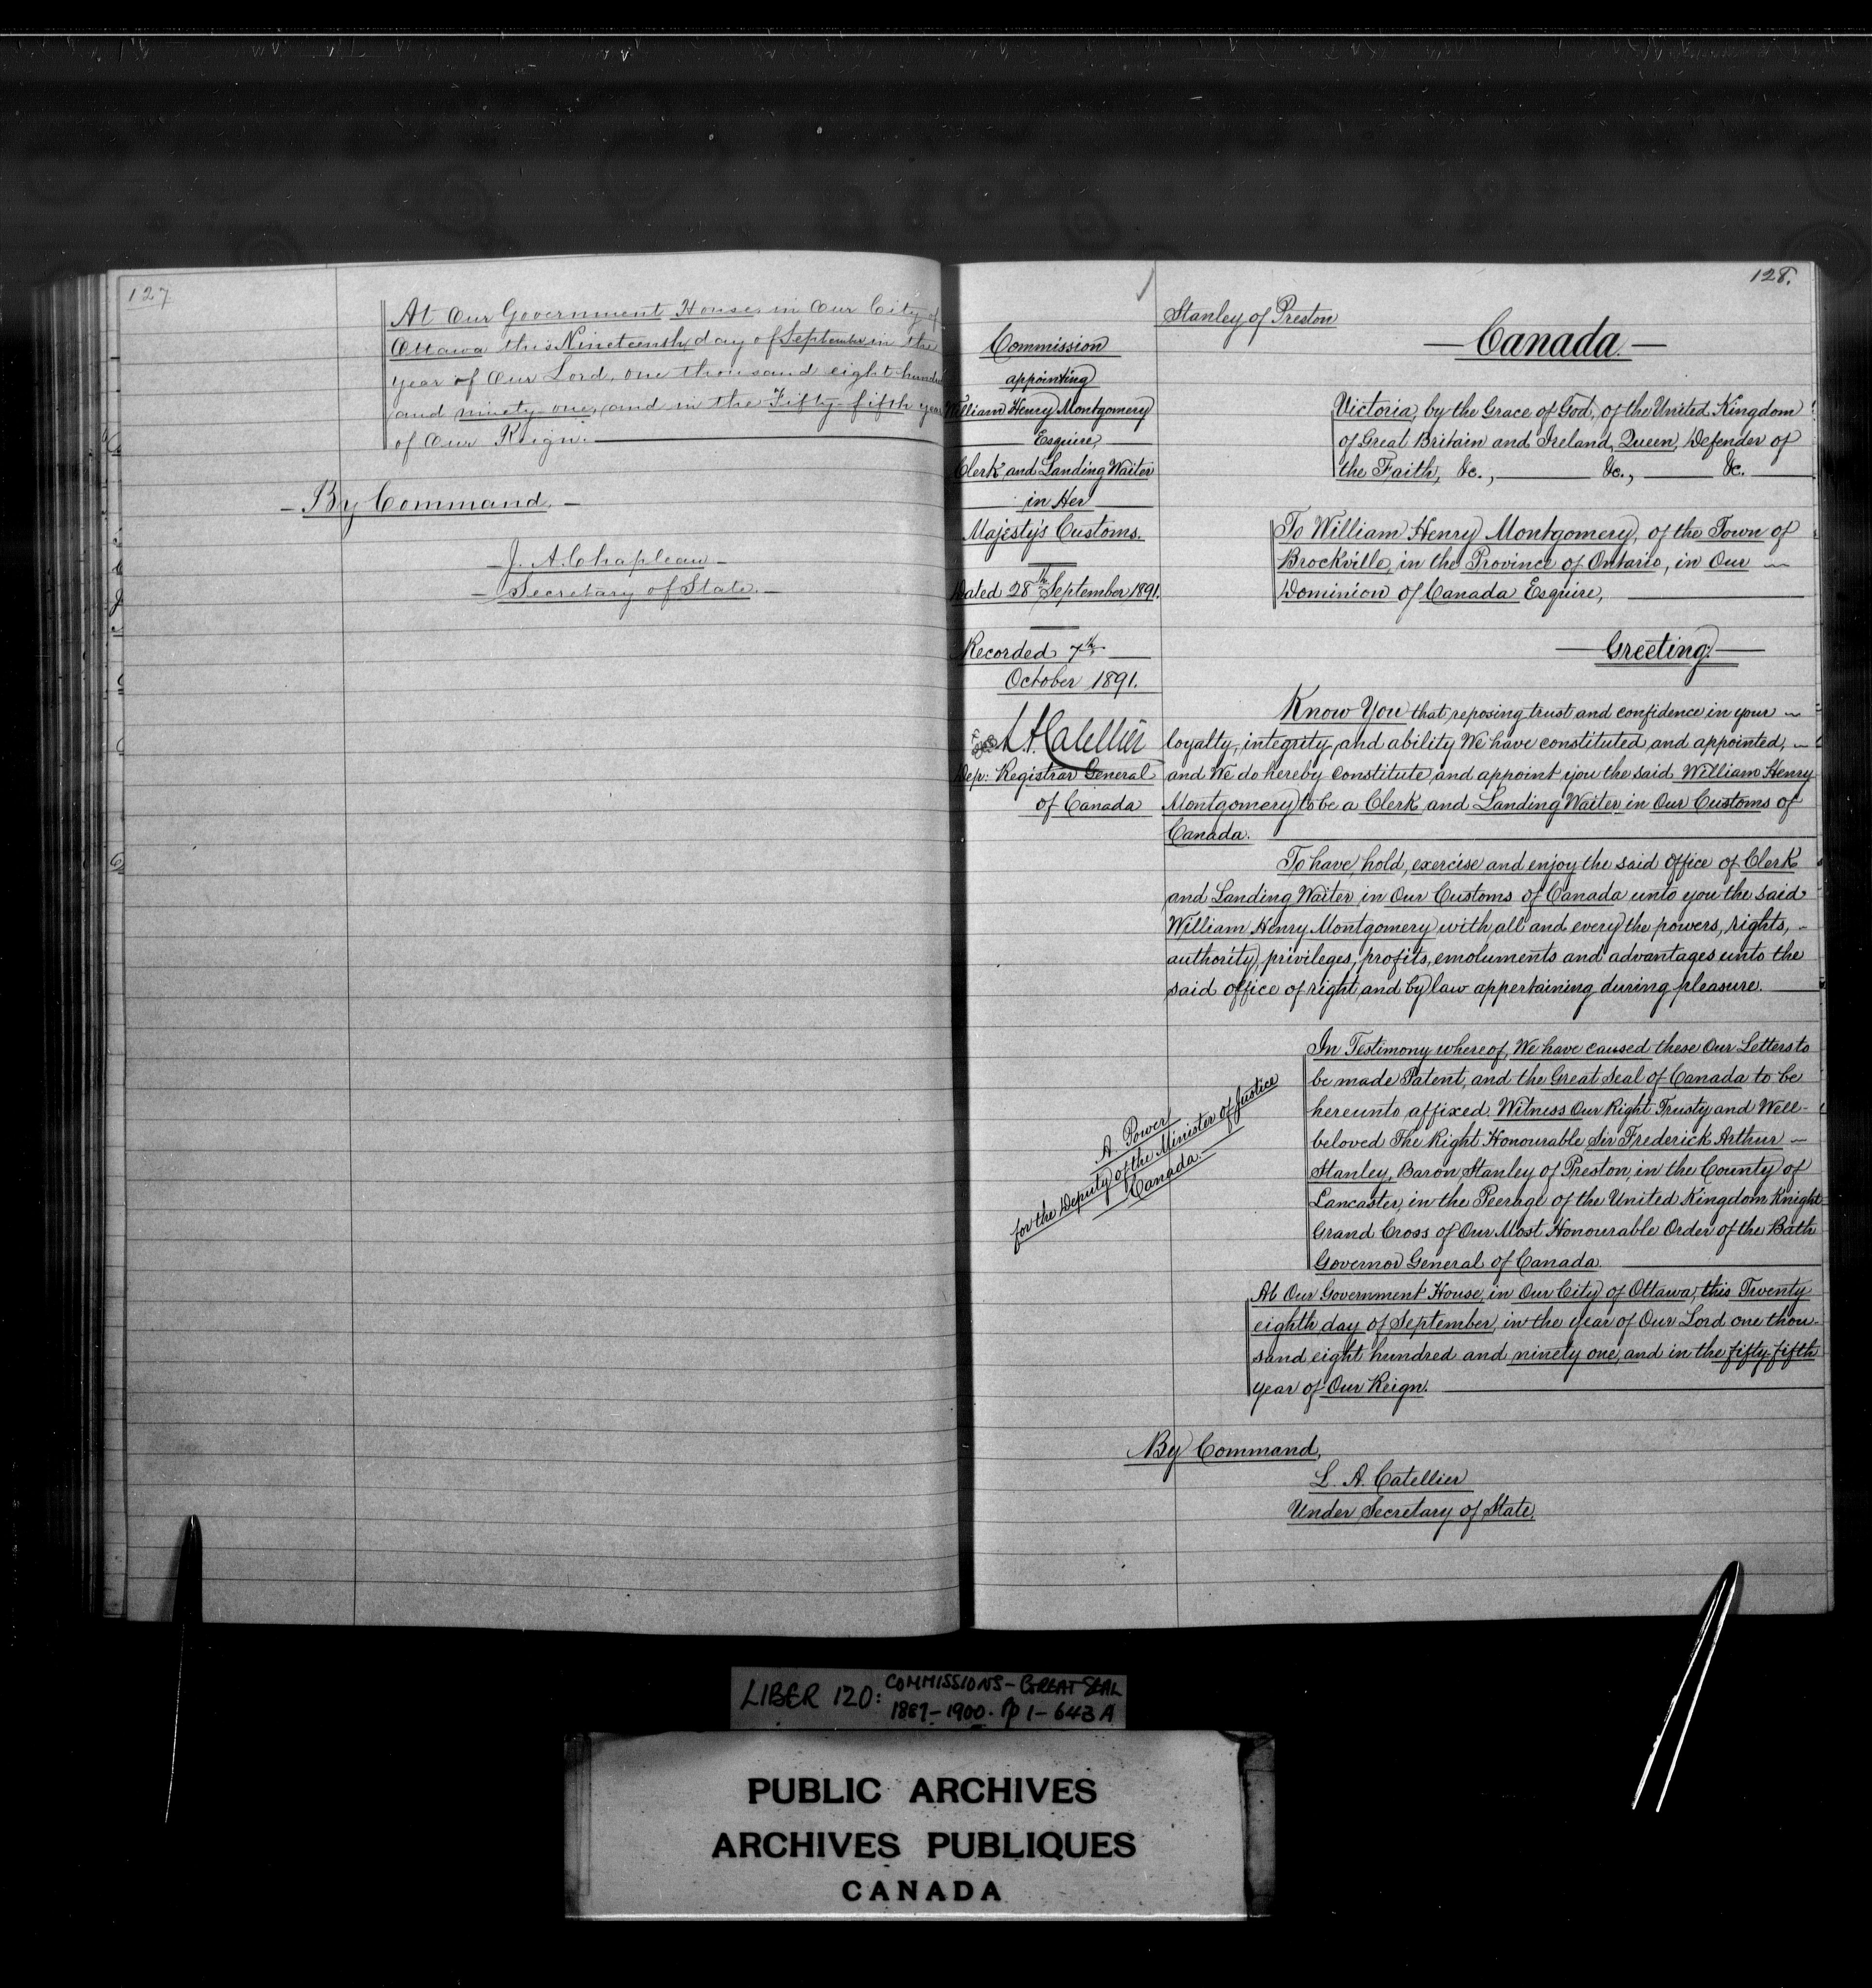 127
At Our Government House, in Our City of
Ottawa this Nineteenth day of September in the
year of Our Lord, one thousand eight hundred
and ninety-one, and in the Fifty-fifth year
of Our Reign.
By Command,
J. A. Chapleau
Secretary of State.
128.
Stanley of Preston
Commission
appointing
William Henry Montgomery
Esquire,
Clerk and Landing Waiter
in Her
Majesty's Customs.
Dated 28th September 1891.
Recorded 7th
October 1891.
L. A. Catellier
Dep: Registrar General
of Canada
Canada.
Victoria, by the Grace of God, of the United Kingdom
of Great Britain and Ireland, Queen, Defender of
the Faith, &c., &c., &c.
To William Henry Montgomery, of the Town of
Brockville, in the Province of Ontario, in Our
Dominion of Canada Esquire,
Greeting:
Know You that reposing trust and confidence in your
loyalty, integrity, and ability We have constituted and appointed,
and We do hereby constitute and appoint you the said William Henry
Montgomery to be a Clerk and Landing Waiter in Our Customs of
Canada.
To have, hold, exercise and enjoy the said office of Clerk
and Landing Waiter in Our Customs of Canada unto you the said
William Henry Montgomery with all and every the powers, rights,
authority, privileges, profits, emoluments and advantages unto the
said office of right and by law appertaining during pleasure.
A. Power
for the Deputy of the Minister of Justice
Canada.
In Testimony whereof, We have caused these Our Letters to
be made Patent, and the Great Seal of Canada to be
hereunto affixed. Witness Our Right Trusty and Well-
beloved The Right Honourable Sir Frederick Arthur
Stanley, Baron Stanley of Preston, in the County of
Lancaster, in the Peerage of the United Kingdom Knight
Grand Cross of Our Most Honourable Order of the Bath
Governor General of Canada.
At Our Government House, in Our City of Ottawa, this Twenty
eighth day of September, in the year of Our Lord one thou-
sand eight hundred and ninety one, and in the fifty-fifth
year of Our Reign.
By Command,
L. A. Catellier
Under Secretary of State.
LIBER 120: COMMISSIONS - GREAT SEAL
1887-1900. Pp 1-643A
PUBLIC ARCHIVES
ARCHIVES PUBLIQUES
CANADA